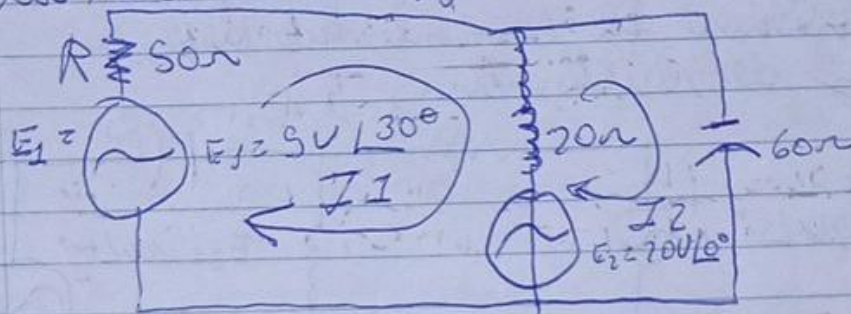 R 50Ω
E1 =
E1 = 5V ∠30°
I1
20Ω
60Ω
I2
E2 = 20V ∠0°